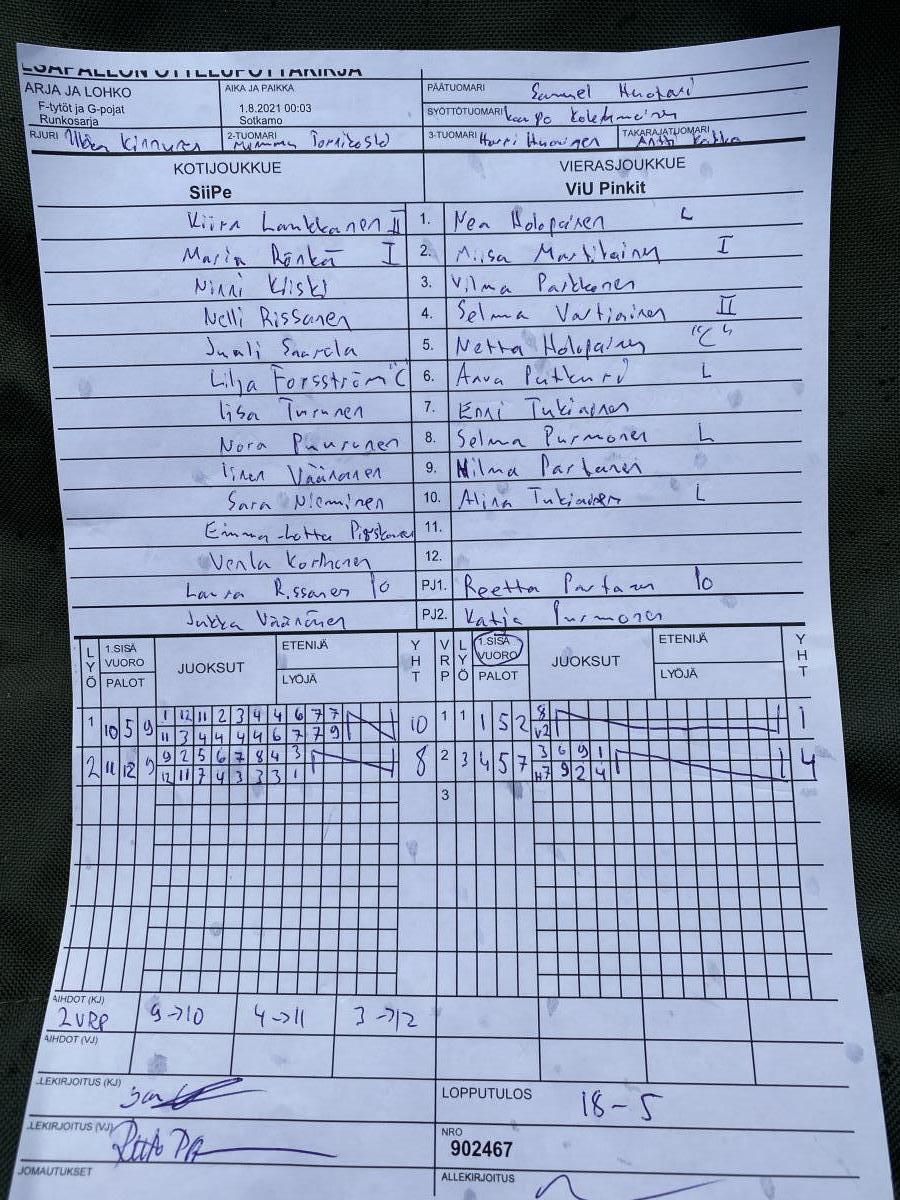 ESÄPALLON OTTELUPÖYTÄKIRJA
ARJA JA LOHKO
F-tytöt ja G-pojat
Runkosarja
AIKA JA PAIKKA
1.8.2021 00:03
Sotkamo
PÄÄTUOMARI Samuel Huotari
SYÖTTÖTUOMARI Kolehmainen
RJURI Kinnunen
2-TUOMARI Tornikoski
3-TUOMARI Harri Huovinen
TAKARAJATUOMARI Antti
KOTIJOUKKUE
SiiPe
VIERASJOUKKUE
ViU Pinkit
Kiira Laukkanen II 1. Nea Holopainen L
Maria Rönkä I 2. Miisa Martikainen I
Ninni Kiiski 3. Vilma Parkkonen
Nelli Rissanen 4. Selma Vartiainen II
Juuli Saarela 5. Netta Holopainen "C"
Lilja Forsström "C" 6. Anna Putkuri L
Iisa Turunen 7. Enni Tukiainen
Nora Puurunen 8. Selma Purmonen L
Iinen Väänänen 9. Hilma Partanen
Sara Nieminen 10. Alina Tukiainen L
Emma-Lotta 11.
Venla Korhonen 12.
Laura Rissanen lo PJ1. Reetta Partanen lo
Jukka Väänänen PJ2. Katja Purmonen
LYÖ 1.SISÄ VUORO PALOT JUOKSUT ETENIJÄ LYÖJÄ YHT VRP LYÖ 1.SISÄ VUORO PALOT JUOKSUT ETENIJÄ LYÖJÄ YHT
1 10 5 9 1 12 11 2 3 4 4 6 7 7 10 1 1 1 5 2 8 1
11 3 4 4 4 4 6 7 7 9 V2
2 11 12 9 9 2 5 6 7 8 4 3 8 2 3 4 5 7 3 6 9 1 4
12 11 7 4 3 3 3 1 H7 9 2 4
3
AIHDOT (KJ)
2VRP 9→10 4→11 3→12
AIHDOT (VJ)
LEKIRJOITUS (KJ)
LOPPUTULOS 18-5
LEKIRJOITUS (VJ)
NRO
902467
JOMAUTUKSET
ALLEKIRJOITUS